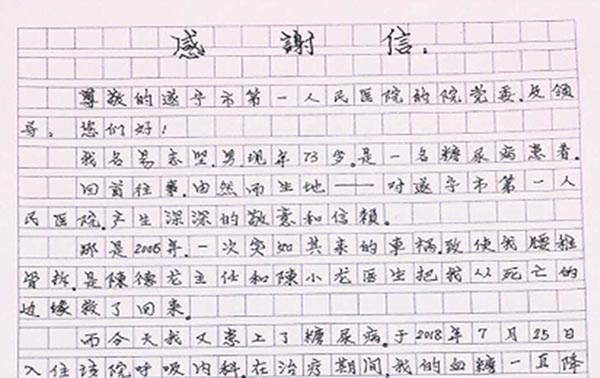 感謝信.
尊敬的遂宁市第一人民医院的院党委.及领
导, 您们好!
我名易志坚.男.现年73岁.是一名糖尿病患者.
回首往事.由然而生地——对遂宁市第一人
民医院.产生深深的敬意和信赖.
那是2005年.一次突如其来的車祸.致使我腰椎
骨折.是陳德龙主任和陳小龙医生把我从死亡的
边缘救了回来.
而今天我又患上了糖尿病.于2018年7月25日
入住该院呼吸内科.在治疗期间,我的血糖一直降